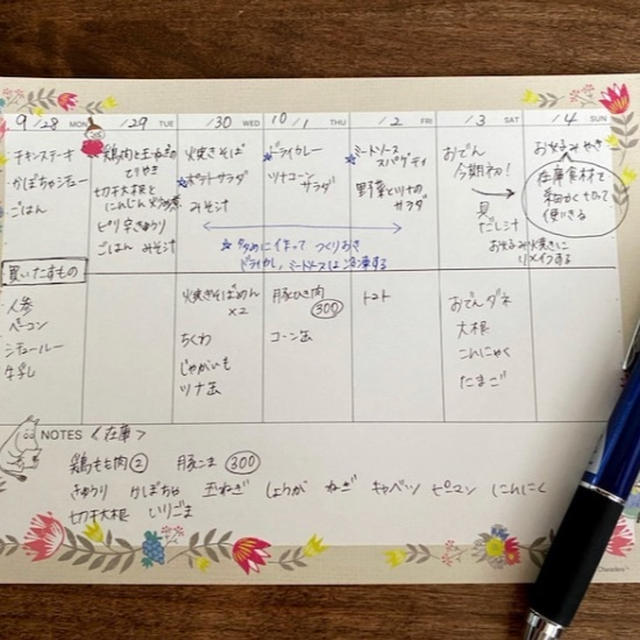 9/28 MON
/29 TUE
/30 WED
10/1 THU
/2 FRI
/3 SAT
/4 SUN
チキンステーキ
かぼちゃシチュー
ごはん
鶏肉と玉ねぎの
てりやき
切干大根と
にんじん
ピリ辛きゅうり
ごはん みそ汁
焼きそば
☆ポテトサラダ
みそ汁
☆ドライカレー
ツナコーン
サラダ
☆ミートソース
スパゲティ
野菜とツナの
サラダ
☆多めに作って つくりおき
ドライカレー、ミートソースは冷凍する
おでん
今期初!
具
だし汁
お好み焼きに
リメイクする
お好みやき
在庫食材で
細かく切って
使いきる
買いたすもの
人参
ベーコン
シチュールー
牛乳
焼きそばめん
×2
ちくわ
じゃがいも
ツナ缶
豚ひき肉
300
コーン缶
トマト
おでんダネ
大根
こんにゃく
たまご
NOTES <在庫>
鶏もも肉② 豚こま 300
きゅうり かぼちゃ 玉ねぎ しょうが ねぎ キャベツ ピーマン にんにく
切干大根 いりごま